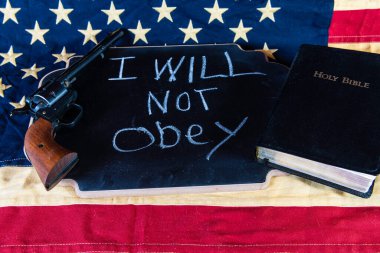 I WILL
NOT
Obey
HOLY BIBLE